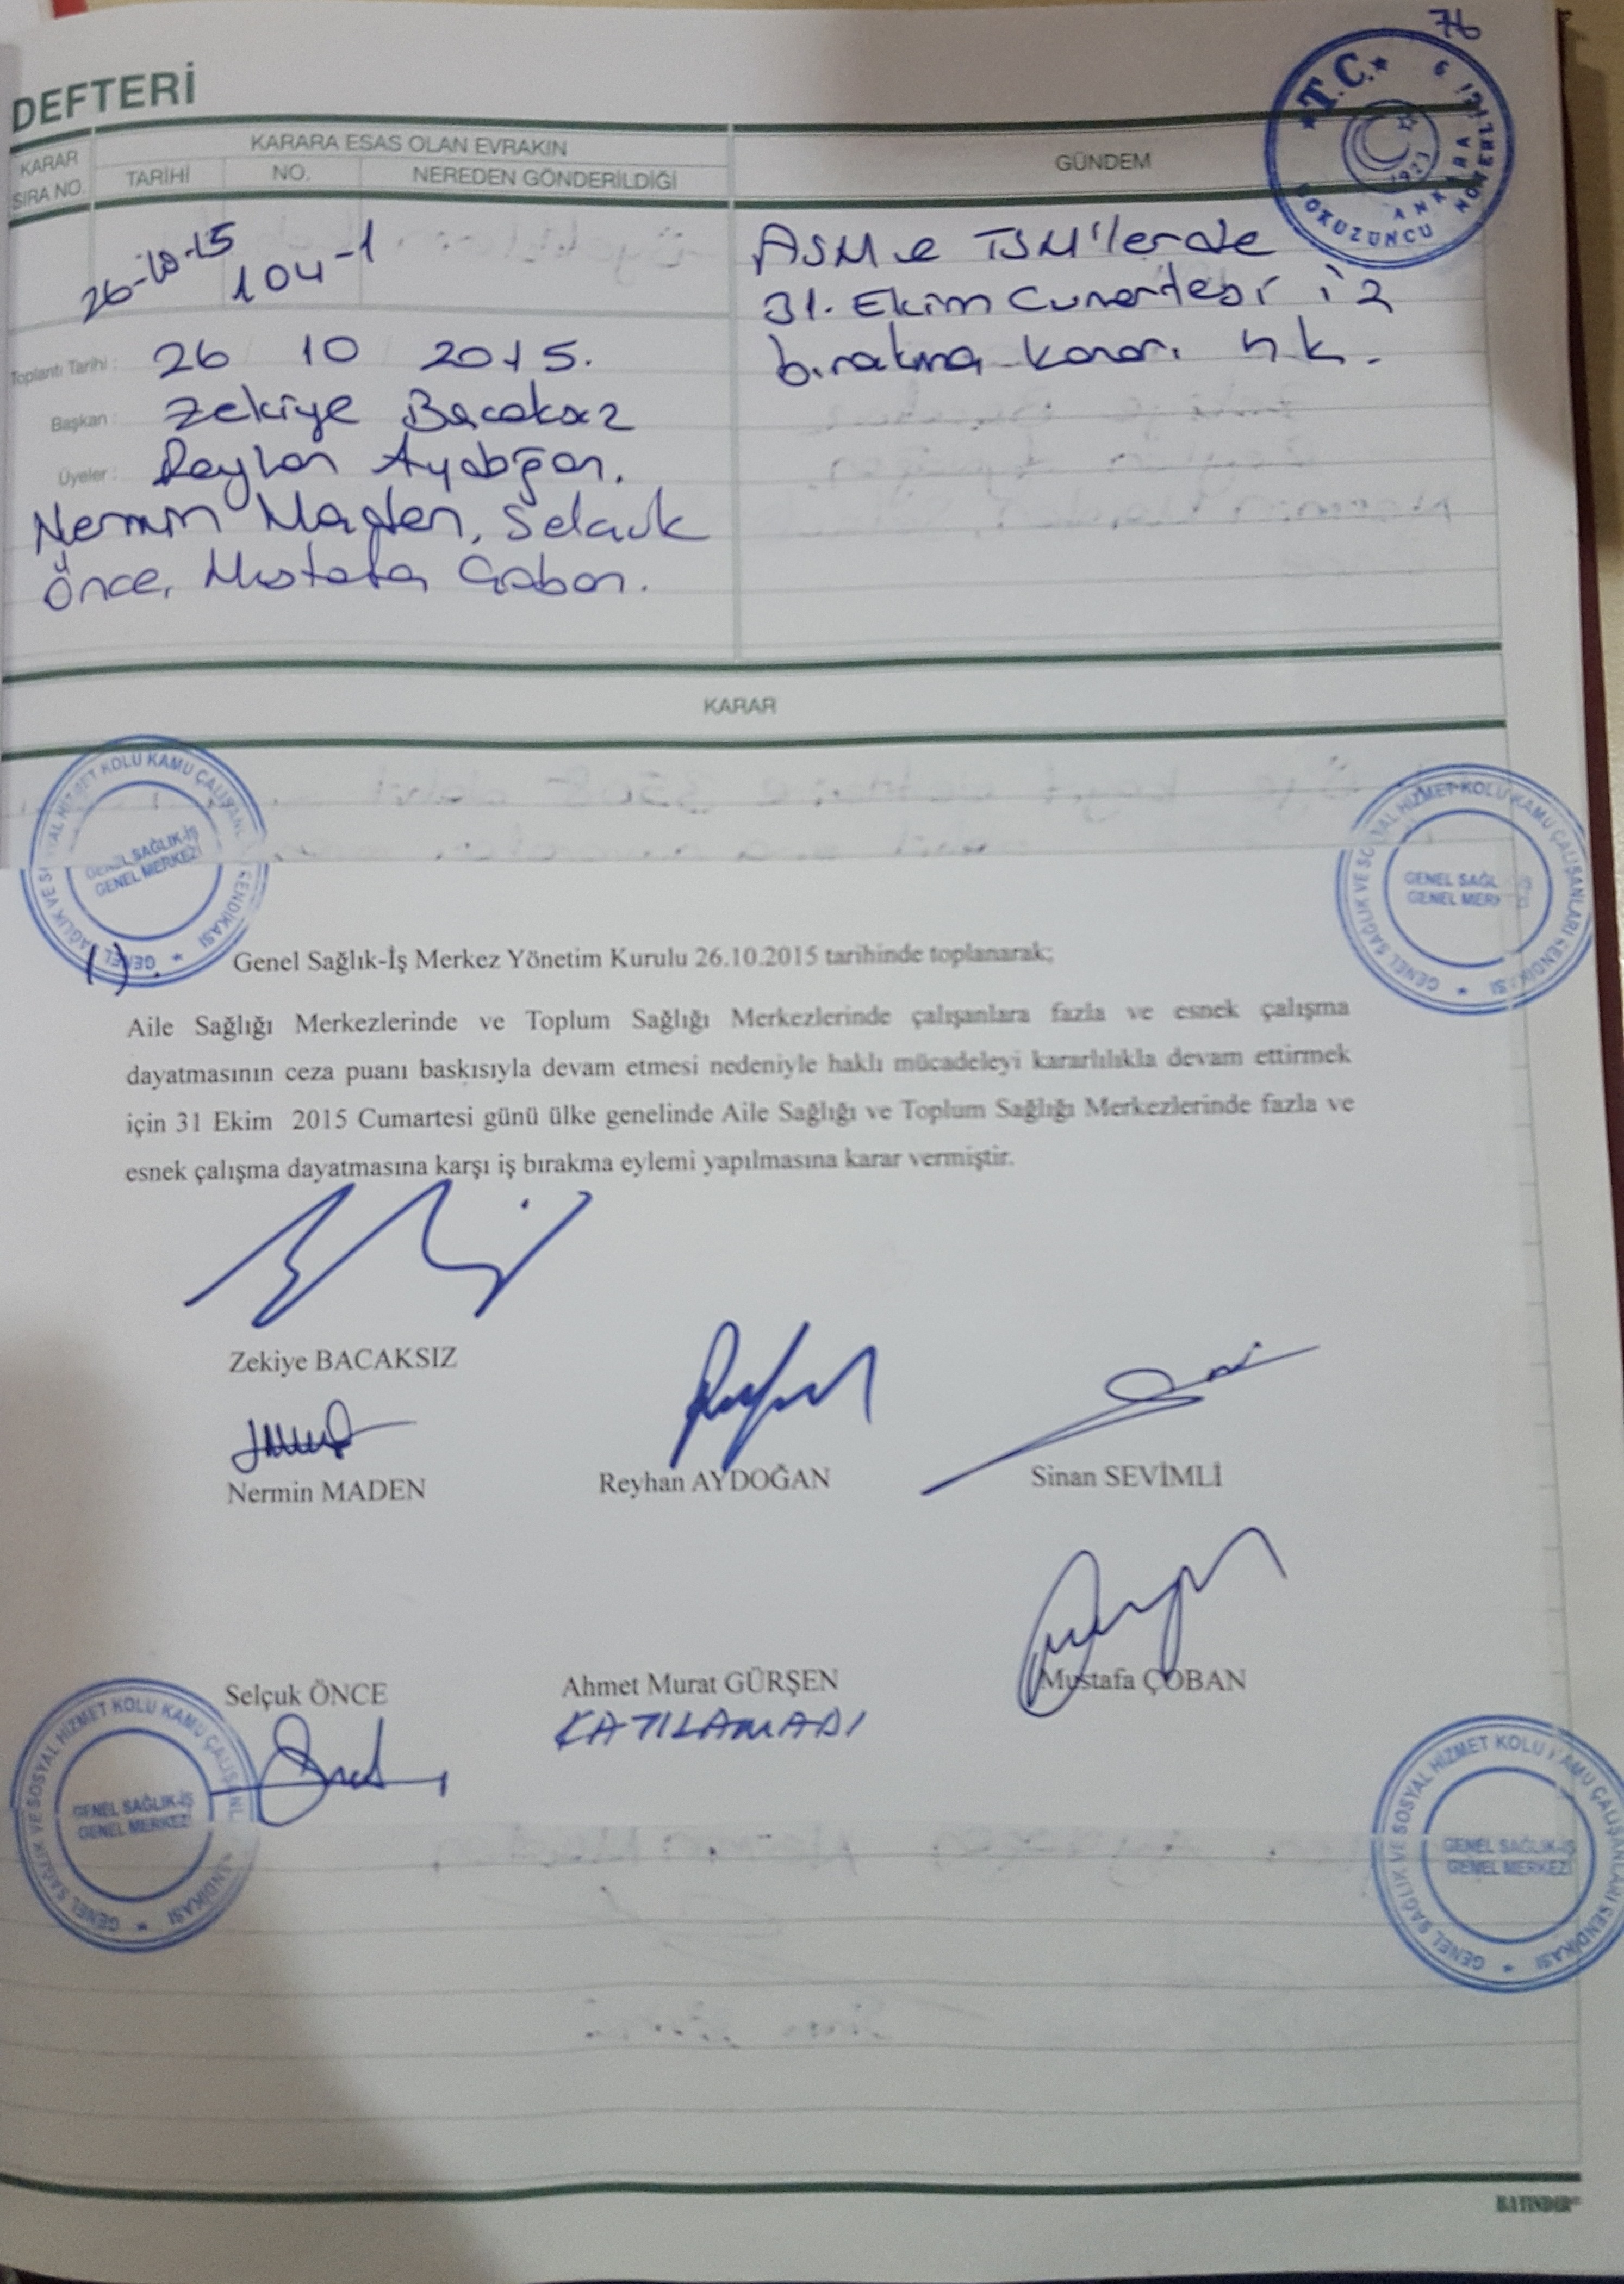 76
DEFTERİ
KARAR SIRA NO.
KARARA ESAS OLAN EVRAKIN
TARİHİ NO. NEREDEN GÖNDERİLDİĞİ
GÜNDEM
T.C.
ANKARA
DOKUZUNCU NOTERLİĞİ
26-10-15 104-1
Toplantı Tarihi : 26 10 2015.
Başkan : Zekiye Bacaksız
Üyeler : Reyhan Aydoğan,
Nermin Maden, Selçuk
Önce, Mustafa Çoban.
ASM ve TSM'lerde
31. Ekim Cumartesi iş
bırakma kararı hk.
KARAR
GENEL SAĞLIK-İŞ
GENEL MERKEZİ
GENEL SAĞLIK VE SOSYAL HİZMET KOLU KAMU ÇALIŞANLARI SENDİKASI
1). Genel Sağlık-İş Merkez Yönetim Kurulu 26.10.2015 tarihinde toplanarak;
Aile Sağlığı Merkezlerinde ve Toplum Sağlığı Merkezlerinde çalışanlara fazla ve esnek çalışma
dayatmasının ceza puanı baskısıyla devam etmesi nedeniyle haklı mücadeleyi kararlılıkla devam ettirmek
için 31 Ekim 2015 Cumartesi günü ülke genelinde Aile Sağlığı ve Toplum Sağlığı Merkezlerinde fazla ve
esnek çalışma dayatmasına karşı iş bırakma eylemi yapılmasına karar vermiştir.
Zekiye BACAKSIZ
Nermin MADEN Reyhan AYDOĞAN Sinan SEVİMLİ
Selçuk ÖNCE Ahmet Murat GÜRŞEN Mustafa ÇOBAN
KATILAMADI
GENEL SAĞLIK-İŞ
GENEL MERKEZİ
GENEL SAĞLIK VE SOSYAL HİZMET KOLU KAMU ÇALIŞANLARI SENDİKASI
BAYINDIR